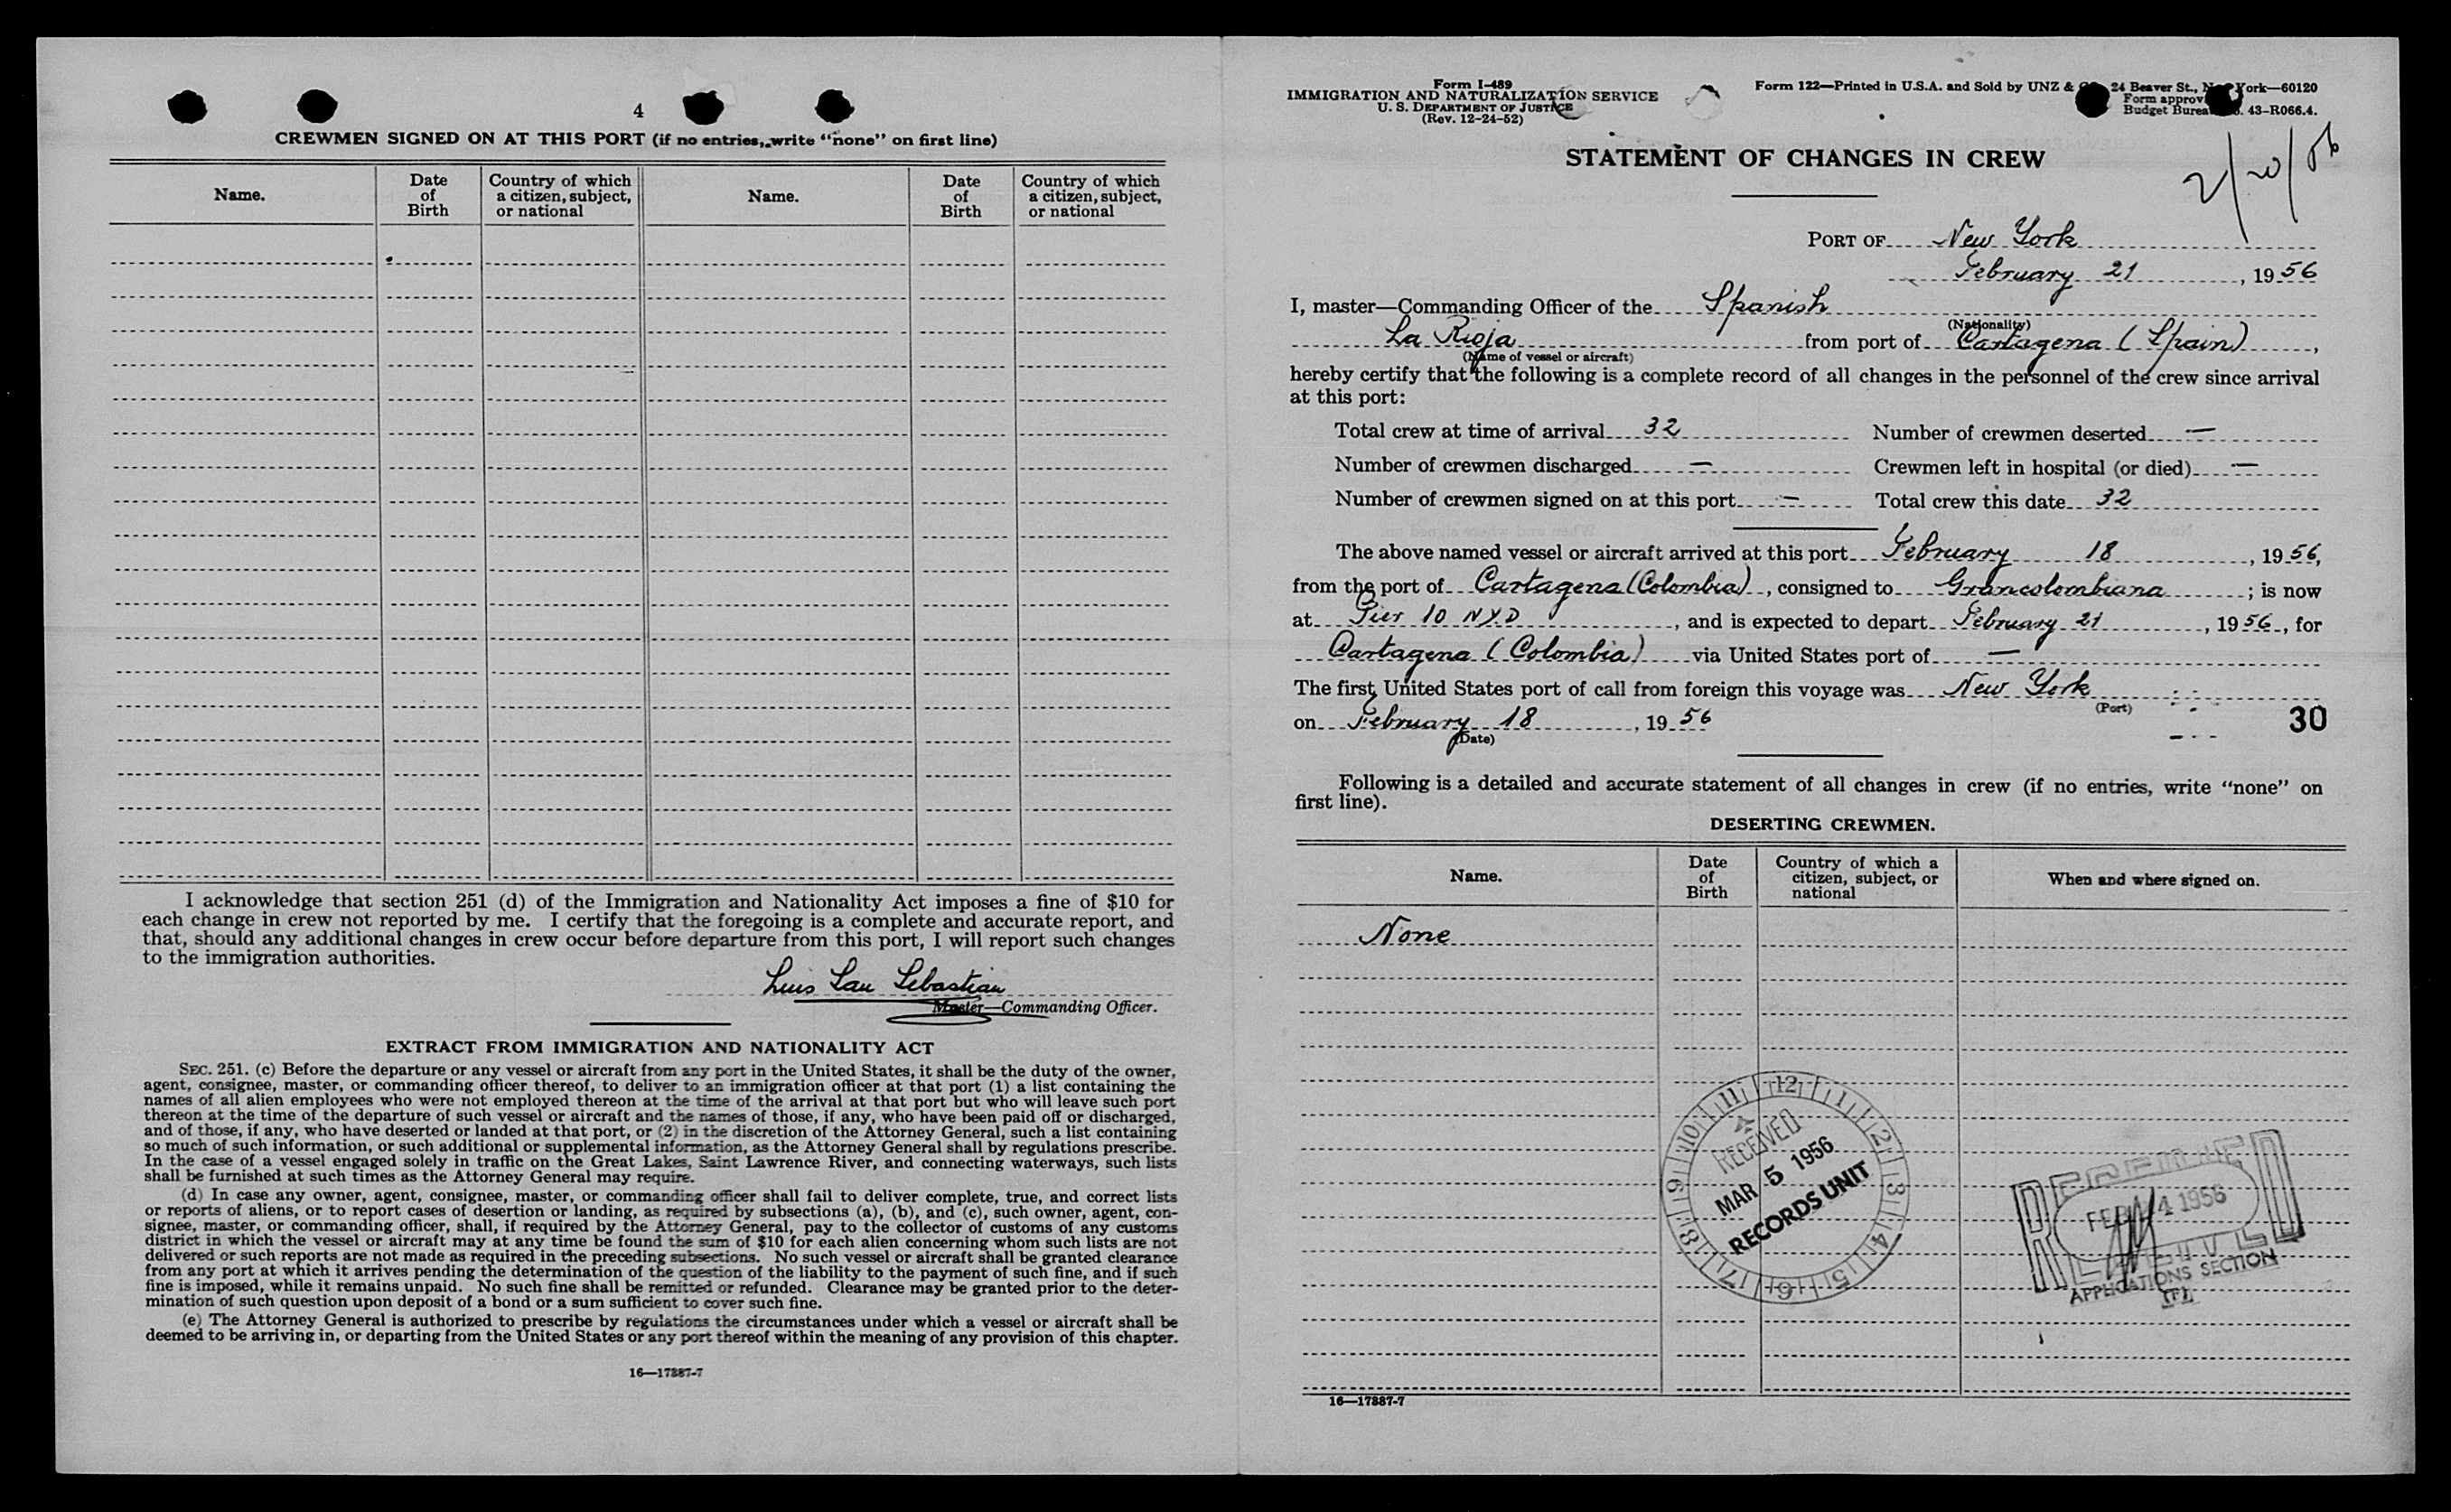 4
CREWMEN SIGNED ON AT THIS PORT (if no entries, write "none" on first line)
Name. Date of Birth Country of which a citizen, subject, or national Name. Date of Birth Country of which a citizen, subject, or national
I acknowledge that section 251 (d) of the Immigration and Nationality Act imposes a fine of $10 for
each change in crew not reported by me. I certify that the foregoing is a complete and accurate report, and
that, should any additional changes in crew occur before departure from this port, I will report such changes
to the immigration authorities.
Luis San Sebastian
Master—Commanding Officer.
EXTRACT FROM IMMIGRATION AND NATIONALITY ACT
SEC. 251. (c) Before the departure or any vessel or aircraft from any port in the United States, it shall be the duty of the owner,
agent, consignee, master, or commanding officer thereof, to deliver to an immigration officer at that port (1) a list containing the
names of all alien employees who were not employed thereon at the time of the arrival at that port but who will leave such port
thereon at the time of the departure of such vessel or aircraft and the names of those, if any, who have been paid off or discharged,
and of those, if any, who have deserted or landed at that port, or (2) in the discretion of the Attorney General, such a list containing
so much of such information, or such additional or supplemental information, as the Attorney General shall by regulations prescribe.
In the case of a vessel engaged solely in traffic on the Great Lakes, Saint Lawrence River, and connecting waterways, such lists
shall be furnished at such times as the Attorney General may require.
(d) In case any owner, agent, consignee, master, or commanding officer shall fail to deliver complete, true, and correct lists
or reports of aliens, or to report cases of desertion or landing, as required by subsections (a), (b), and (c), such owner, agent, con-
signee, master, or commanding officer, shall, if required by the Attorney General, pay to the collector of customs of any customs
district in which the vessel or aircraft may at any time be found the sum of $10 for each alien concerning whom such lists are not
delivered or such reports are not made as required in the preceding subsections. No such vessel or aircraft shall be granted clearance
from any port at which it arrives pending the determination of the question of the liability to the payment of such fine, and if such
fine is imposed, while it remains unpaid. No such fine shall be remitted or refunded. Clearance may be granted prior to the deter-
mination of such question upon deposit of a bond or a sum sufficient to cover such fine.
(e) The Attorney General is authorized to prescribe by regulations the circumstances under which a vessel or aircraft shall be
deemed to be arriving in, or departing from the United States or any port thereof within the meaning of any provision of this chapter.
16—17887-7
Form I-489
IMMIGRATION AND NATURALIZATION SERVICE
U. S. DEPARTMENT OF JUSTICE
(Rev. 12-24-52)
Form 122—Printed in U.S.A. and Sold by UNZ & 24 Beaver St., York—60120
Form approv
Budget Burea 43-R066.4.
STATEMENT OF CHANGES IN CREW
2/20/56
PORT OF New York
February 21, 1956
I, master—Commanding Officer of the Spanish
(Nationality)
La Rioja from port of Cartagena (Spain),
(Name of vessel or aircraft)
hereby certify that the following is a complete record of all changes in the personnel of the crew since arrival
at this port:
Total crew at time of arrival 32 Number of crewmen deserted —
Number of crewmen discharged — Crewmen left in hospital (or died) —
Number of crewmen signed on at this port — Total crew this date 32
The above named vessel or aircraft arrived at this port February 18, 1956,
from the port of Cartagena (Colombia), consigned to Grancolombiana; is now
at Pier 10 NYD, and is expected to depart February 21, 1956, for
Cartagena (Colombia) via United States port of —
The first United States port of call from foreign this voyage was New York
(Port)
on February 18, 1956
(Date)
30
Following is a detailed and accurate statement of all changes in crew (if no entries, write "none" on
first line).
DESERTING CREWMEN.
Name. Date of Birth Country of which a citizen, subject, or national When and where signed on.
None
12 1 2 3 4 5 6 7 8 9 10 11
RECEIVED
MAR 5 1956
RECORDS UNIT
RECEIVED
1956
APPLICATIONS SECTION
16—17887-7